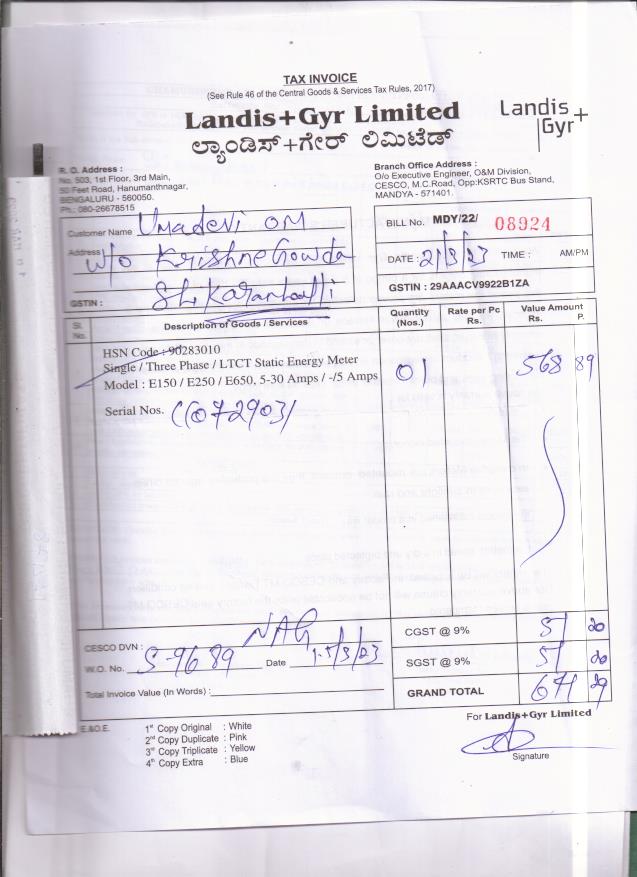 TAX INVOICE
(See Rule 46 of the Central Goods & Services Tax Rules, 2017)
Landis+Gyr Limited
Landis+
Gyr
ಲ್ಯಾಂಡಿಸ್+ಗೇರ್ ಲಿಮಿಟೆಡ್
R. O. Address :
No. 503, 1st Floor, 3rd Main,
50 Feet Road, Hanumanthnagar,
BENGALURU - 560050.
Ph.: 080-26678515
Branch Office Address :
O/o Executive Engineer, O&M Division,
CESCO, M.C.Road, Opp:KSRTC Bus Stand,
MANDYA - 571401.
Customer Name Umadevi OM
Address W/o Krishnegowda
GSTIN :
BILL No. MDY/22/ 08924
DATE : 21/3/23 TIME : AM/PM
GSTIN : 29AAACV9922B1ZA
Sl. No. Description of Goods / Services Quantity (Nos.) Rate per Pc Rs. Value Amount Rs. P.
HSN Code : 90283010
Single / Three Phase / LTCT Static Energy Meter
Model : E150 / E250 / E650, 5-30 Amps / -/5 Amps 01 568 89
Serial Nos.
CESCO DVN : NAG
W.O. No. S-9689 Date
Total Invoice Value (In Words) :
CGST @ 9% 51 20
SGST @ 9% 51 20
GRAND TOTAL 671 29
E.&O.E.
1st Copy Original : White
2nd Copy Duplicate : Pink
3rd Copy Triplicate : Yellow
4th Copy Extra : Blue
For Landis+Gyr Limited
Signature